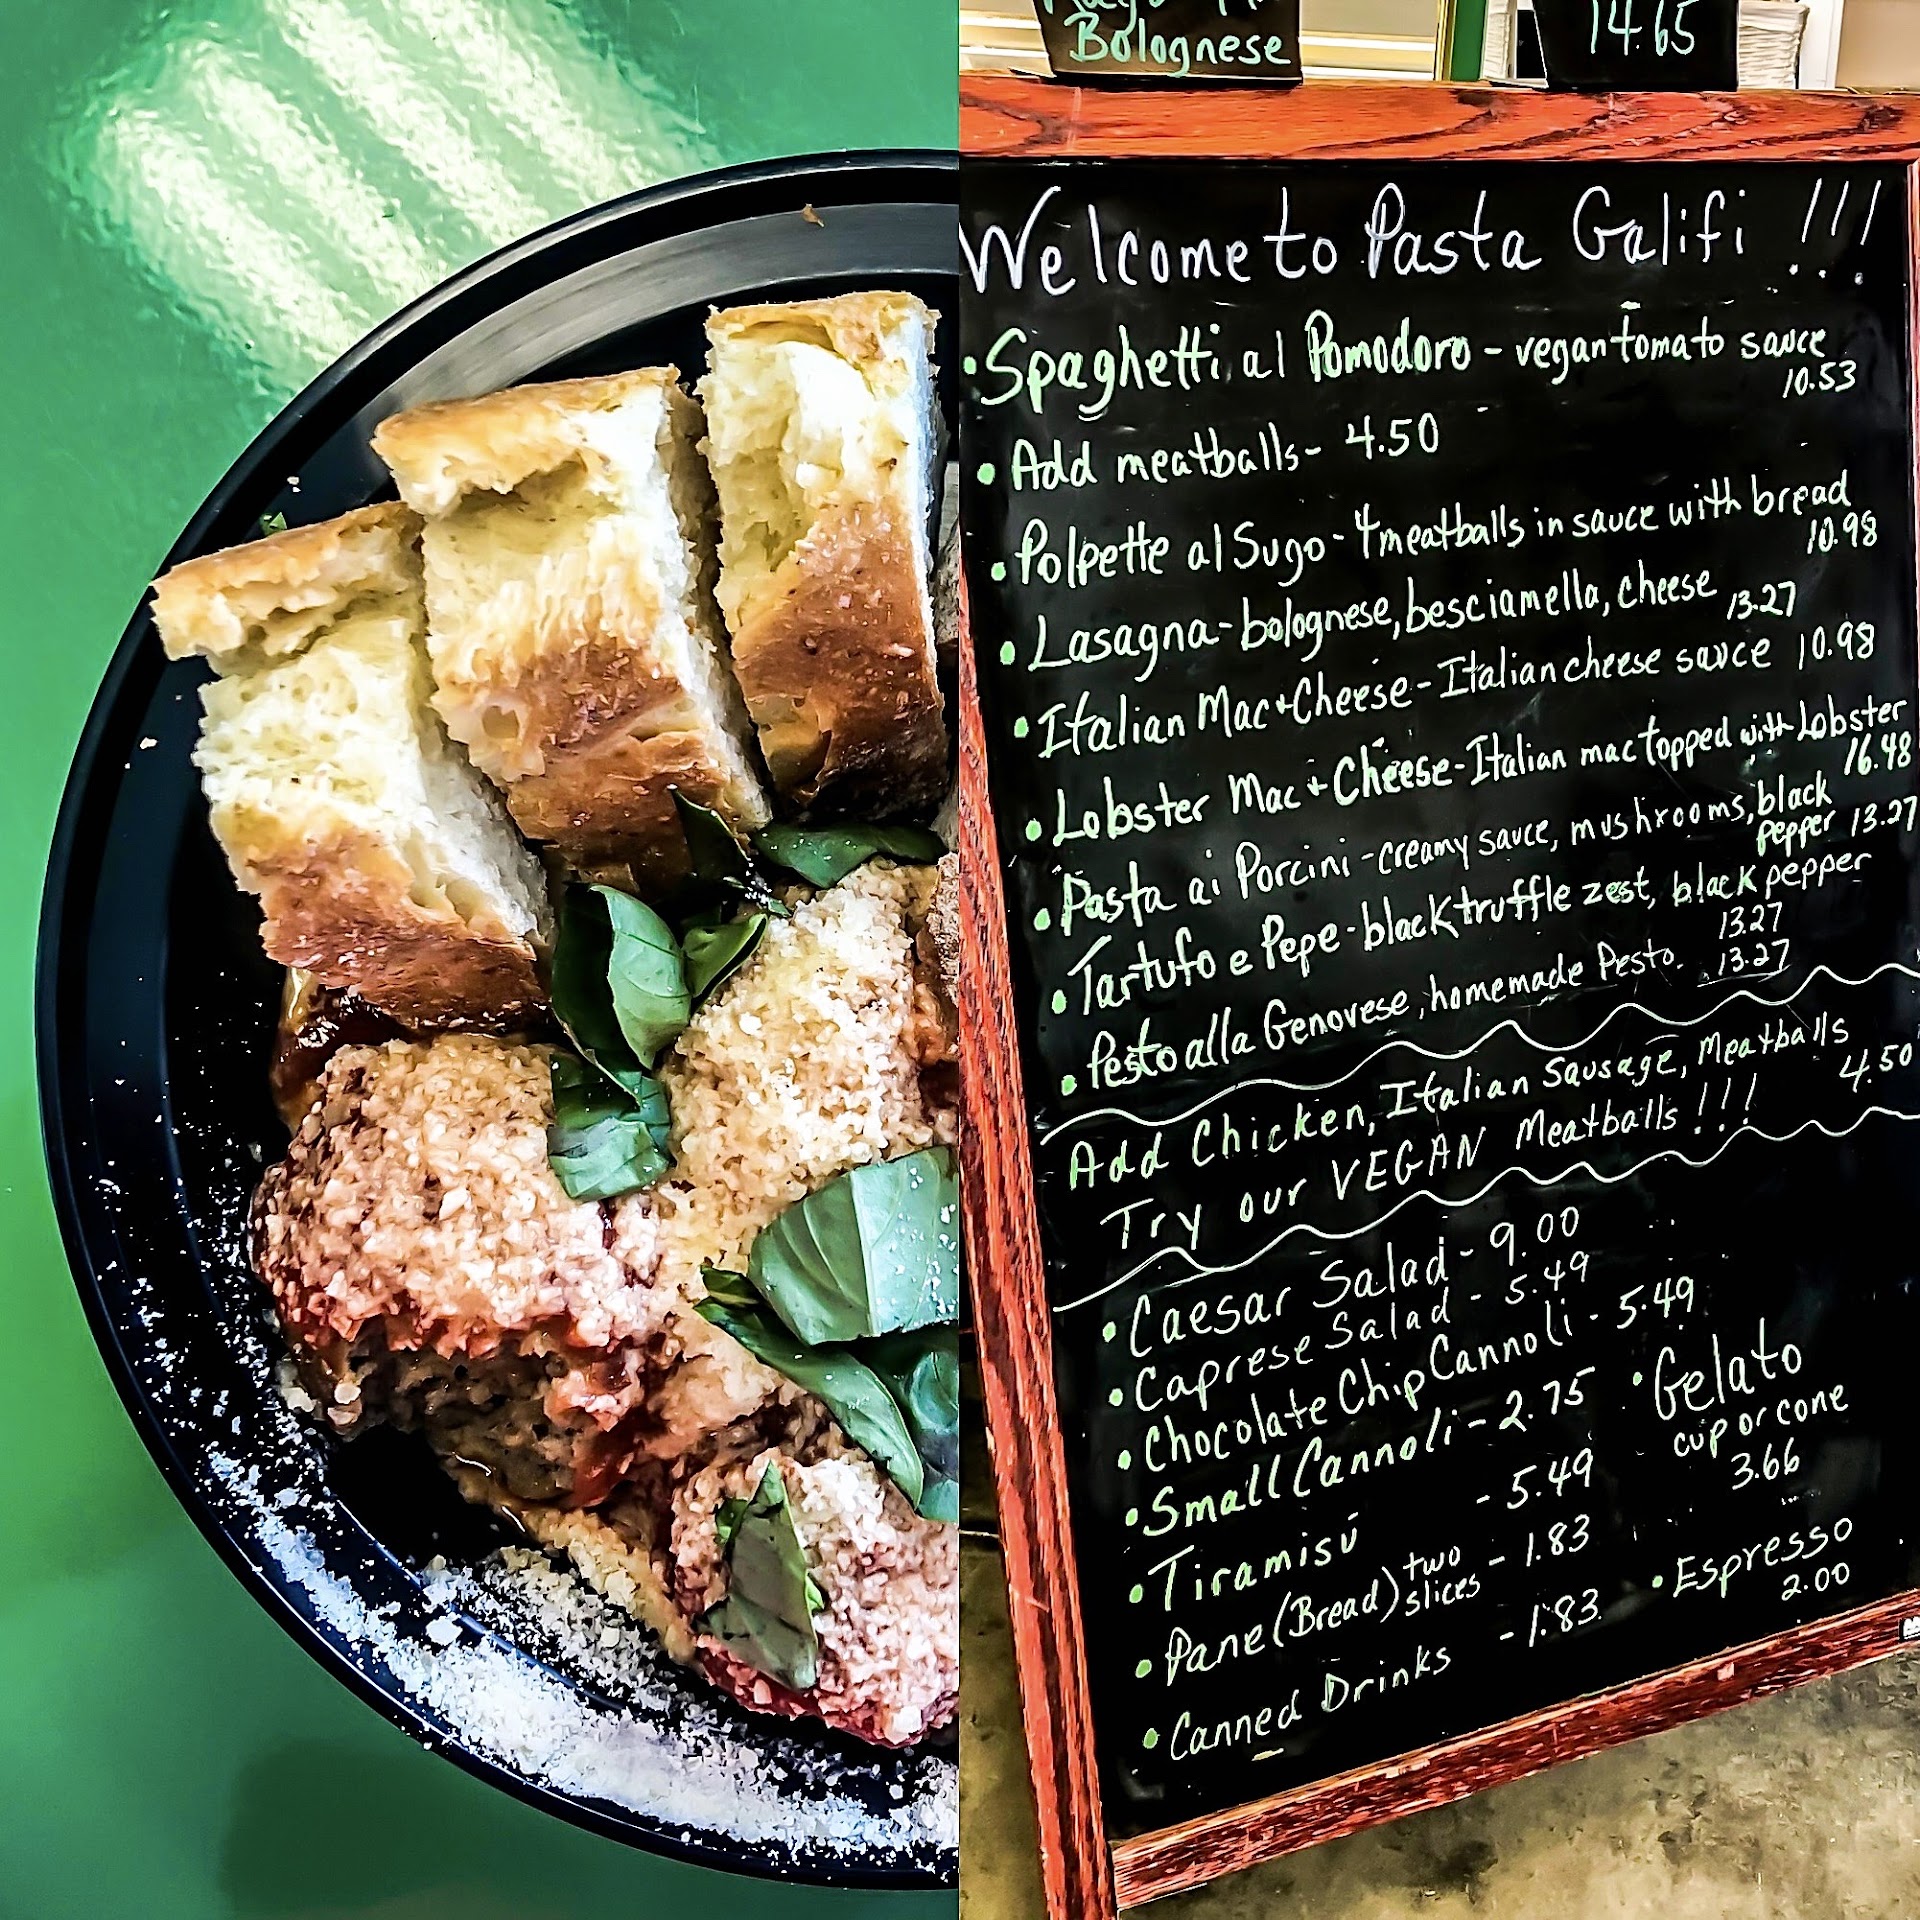 Bolognese
14.65
Welcome to Pasta Galifi !!!
• Spaghetti al Pomodoro - vegan tomato sauce
10.53
• Add meatballs - 4.50
• Polpette al Sugo - 4 meatballs in sauce with bread
10.98
• Lasagna - bolognese, besciamella, cheese
13.27
• Italian Mac + Cheese - Italian cheese sauce 10.98
• Lobster Mac + Cheese - Italian mac topped with Lobster
16.48
• Pasta ai Porcini - creamy sauce, mushrooms, black
pepper 13.27
• Tartufo e Pepe - black truffle zest, black pepper
13.27
• Pesto alla Genovese, homemade Pesto. 13.27
Add Chicken, Italian Sausage, Meatballs
4.50
Try our VEGAN Meatballs !!!
• Caesar Salad - 9.00
• Caprese Salad - 5.49
• Chocolate Chip Cannoli - 5.49
• Small Cannoli - 2.75
• Gelato
cup or cone
3.66
• Tiramisú - 5.49
• Pane (Bread) two
slices - 1.83
• Espresso
2.00
• Canned Drinks - 1.83